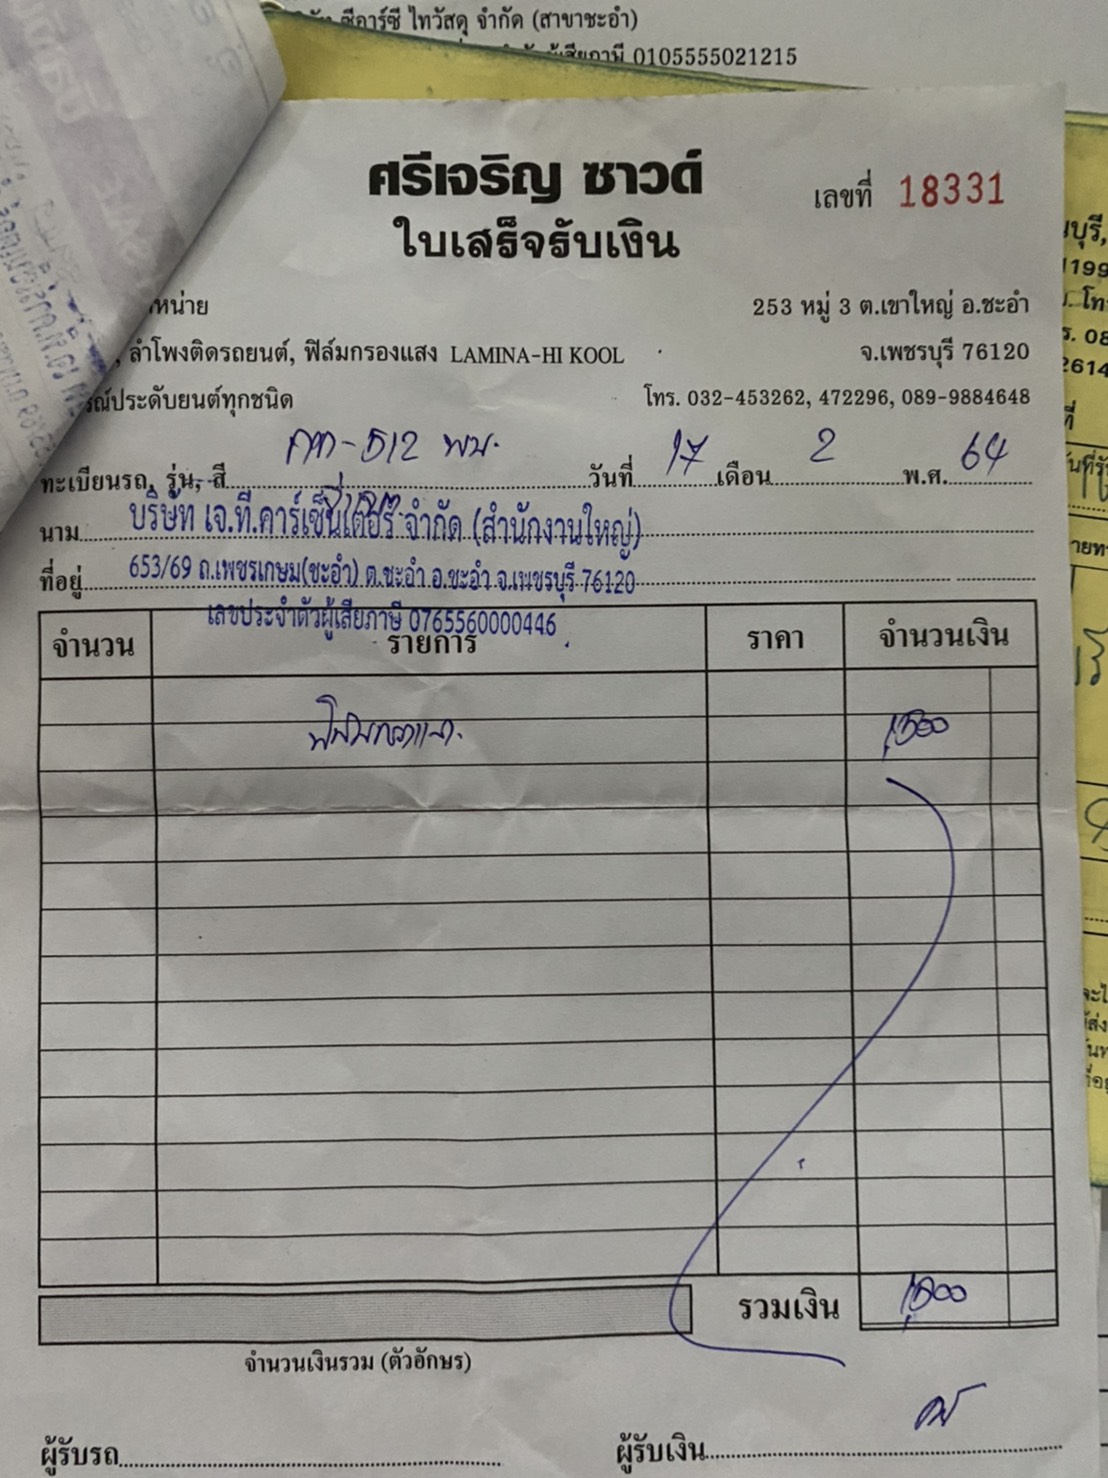 ซีอาร์ซี ไทวัสดุ จำกัด (สาขาชะอำ)
0105555021215
ศรีเจริญ ซาวด์
เลขที่ 18331
ใบเสร็จรับเงิน
253 หมู่ 3 ต.เขาใหญ่ อ.ชะอำ
ลำโพงติดรถยนต์, ฟิล์มกรองแสง LAMINA-HI KOOL
จ.เพชรบุรี 76120
ประดับยนต์ทุกชนิด
โทร. 032-453262, 472296, 089-9884648
ทะเบียนรถ, รุ่น, สี 512 พบ. วันที่ 17 เดือน 2 พ.ศ. 64
นาม บริษัท เจ.ที.คาร์เซ็นเตอร์ จำกัด (สำนักงานใหญ่)
ที่อยู่ 653/69 ถ.เพชรเกษม(ชะอำ) ต.ชะอำ อ.ชะอำ จ.เพชรบุรี 76120
เลขประจำตัวผู้เสียภาษี 0765560000446
จำนวน รายการ ราคา จำนวนเงิน
ฟิล์มกรองแสง 1,500
รวมเงิน 1,500
จำนวนเงินรวม (ตัวอักษร)
ผู้รับรถ ผู้รับเงิน